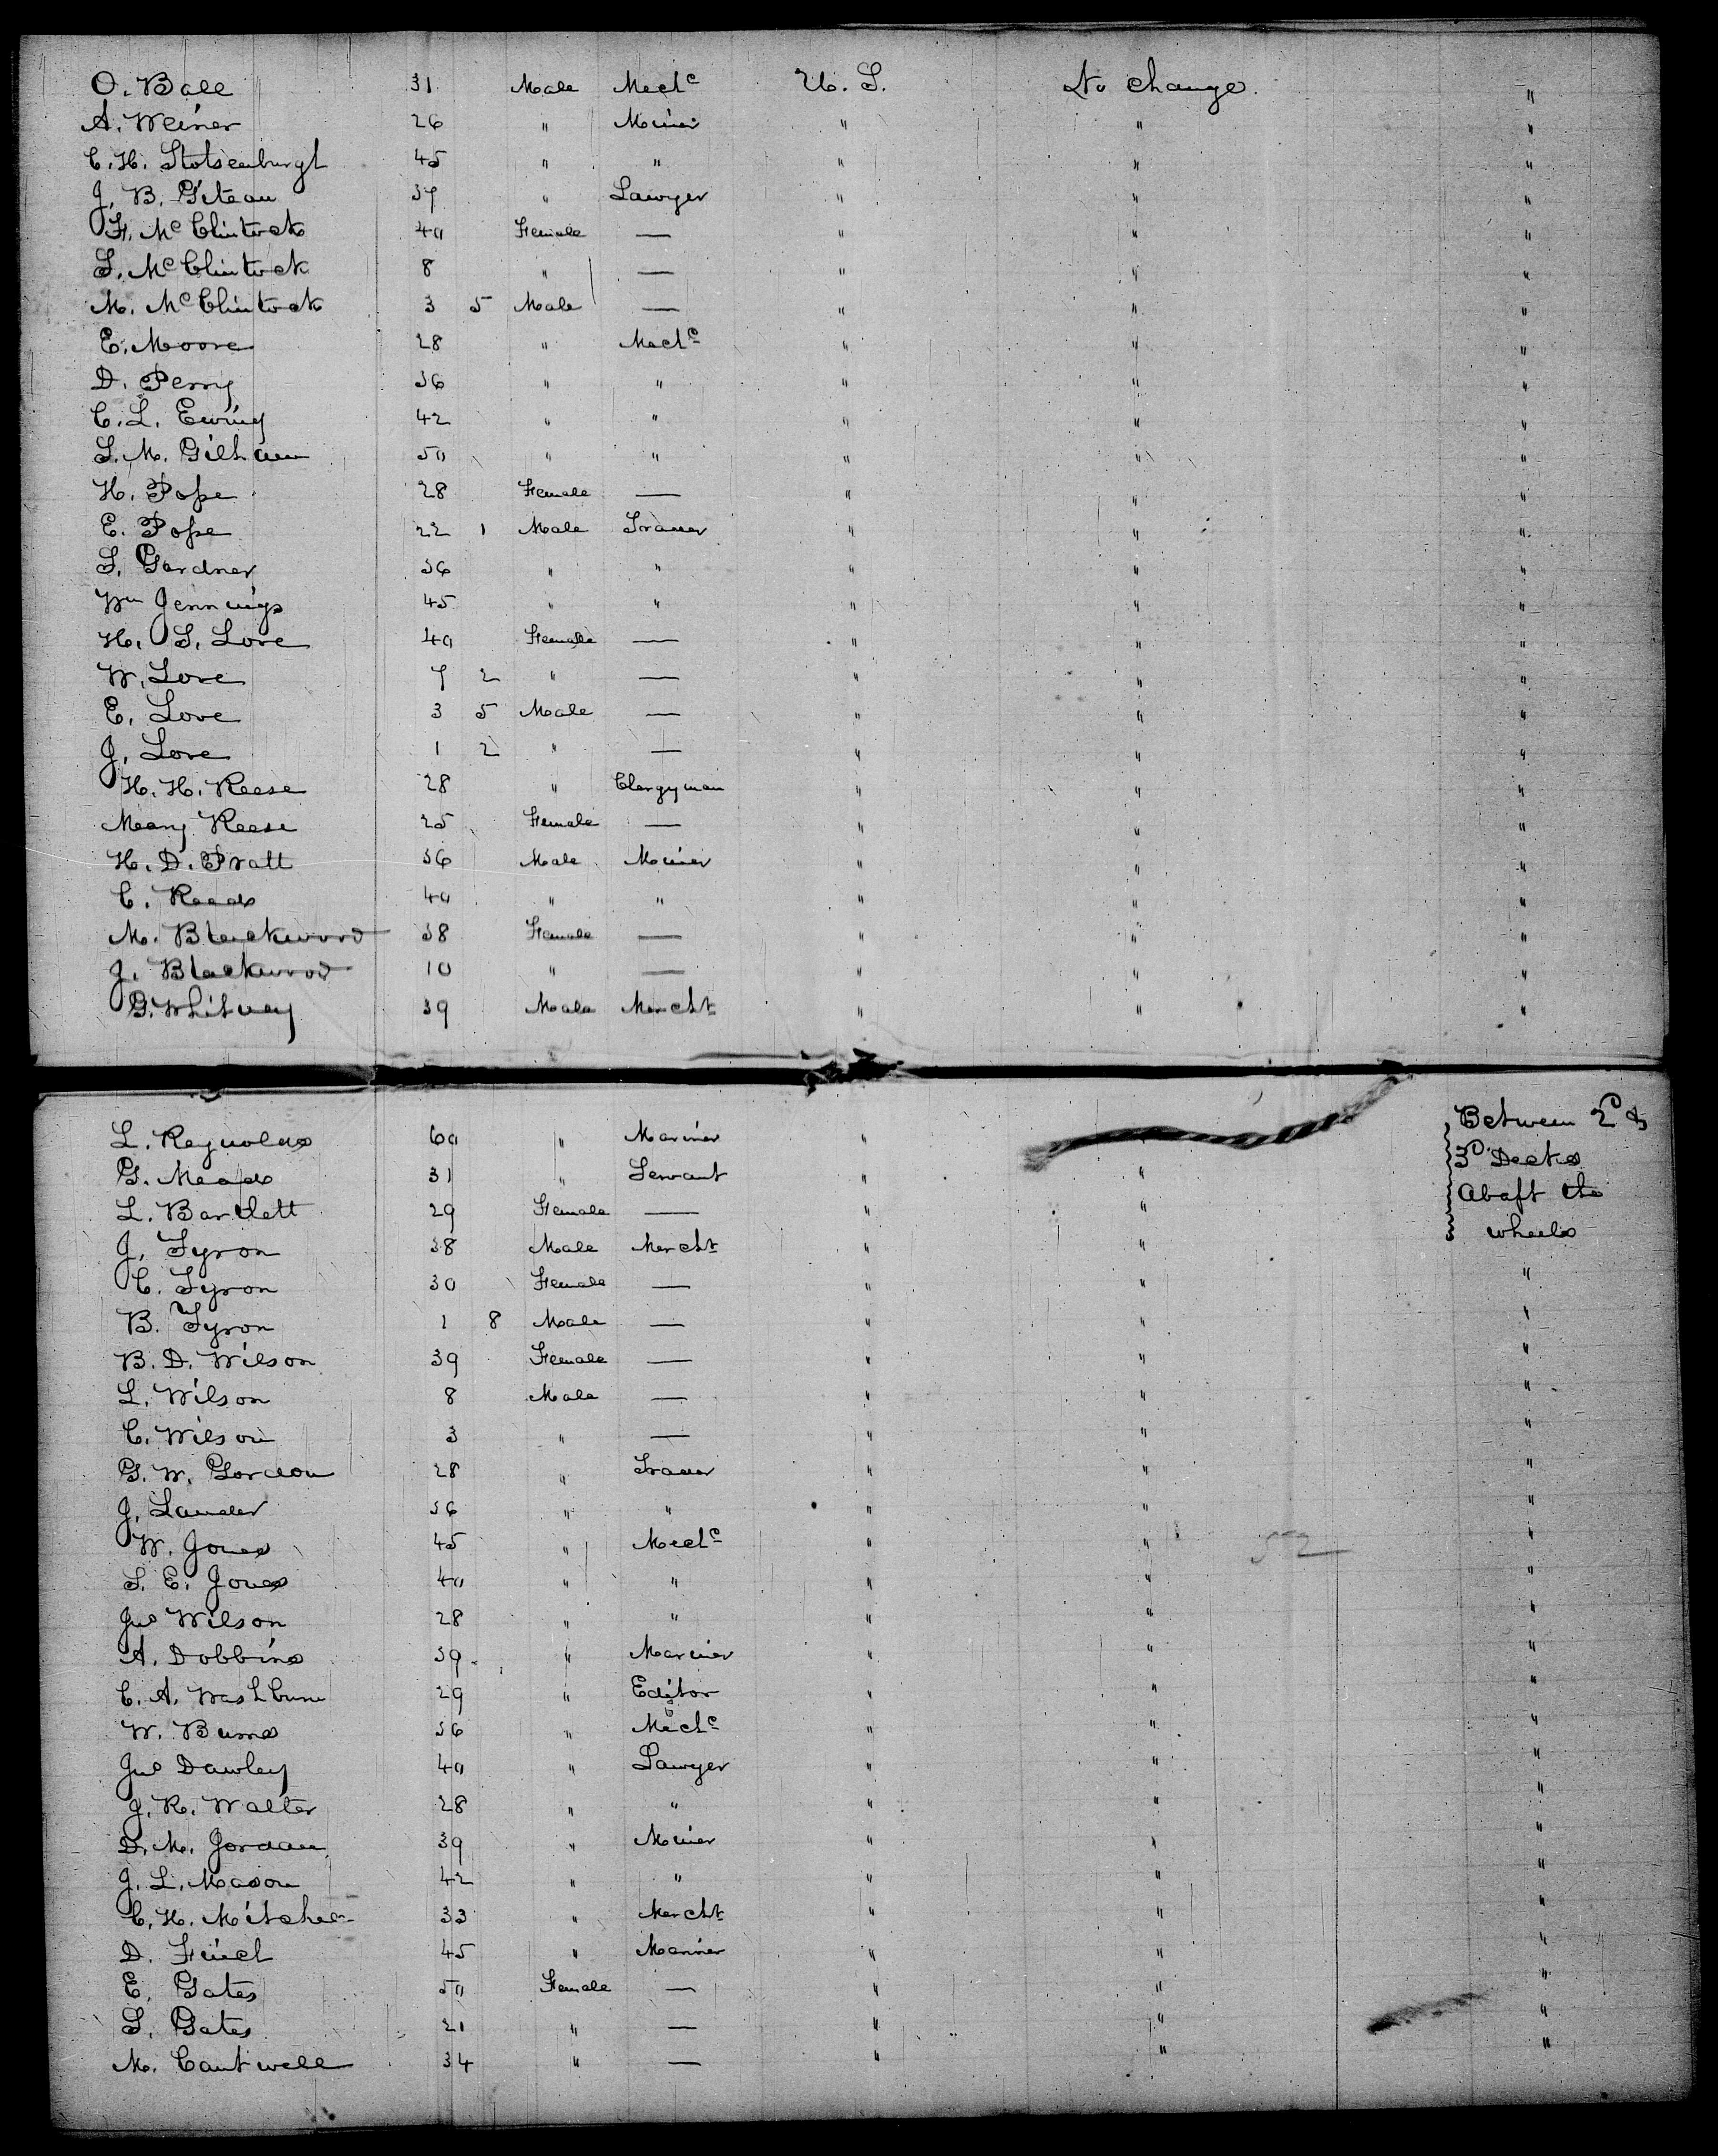 O. Ball 31 Male Mechc U. S. No change. "
A. Weiner 26 " Miner " " "
C. H. Stotsenburgh 45 " " " " "
J. B. Giteau 37 " Lawyer " " "
F. McClintock 40 Female — " " "
S. McClintock 8 " — " " "
M. McClintock 3 5 Male — " " "
E. Moore 28 " Mechc " " "
D. Perry 36 " " " " "
C. L. Ewing 42 " " " " "
S. M. Gilham 50 " " " " "
H. Pope 28 Female — " " "
E. Pope 22 1 Male Trader " " "
S. Gardner 36 " " " " "
Wm Jennings 45 " " " " "
H. S. Love 40 Female — " " "
W. Love 7 2 " — " " "
E. Love 3 5 Male — " " "
J. Love 1 2 " — " " "
H. H. Reese 28 " Clergyman " " "
Mary Reese 25 Female — " " "
H. D. Pratt 36 Male Miner " " "
C. Reads 40 " " " " "
M. Blackwood 38 Female — " " "
J. Blackwood 10 " — " " "
G. Whitney 39 Male Mercht " " "
L. Reynolds 60 " Mariner " Between 2d &
G. Meads 31 " Servant " " 3d Decks
L. Bartlett 29 Female — " " Abaft the
J. Tyron 38 Male Mercht " " wheels
C. Tyron 30 Female — " " "
B. Tyron 1 8 Male — " " "
B. D. Wilson 39 Female — " " "
L. Wilson 8 Male — " " "
C. Wilson 3 " — " " "
G. W. Gordon 28 " Trader " " "
J. Lander 36 " " " " "
W. Jones 45 " Mechc " " 52 "
S. E. Jones 40 " " " " "
Jno Wilson 28 " " " " "
A. Dobbins 39 " Mariner " " "
C. A. Washburn 29 " Editor " " "
W. Burns 36 " Mechc " " "
Jno Dawley 40 " Lawyer " " "
J. R. Walter 28 " " " " "
D. M. Jordan 39 " Miner " " "
J. L. Mason 42 " " " " "
C. H. Mitchell 33 " Mercht " " "
D. Finch 45 " Mariner " " "
E. Gates 50 Female — " " "
S. Gates 21 " — " " "
M. Cantwell 34 " — " " "